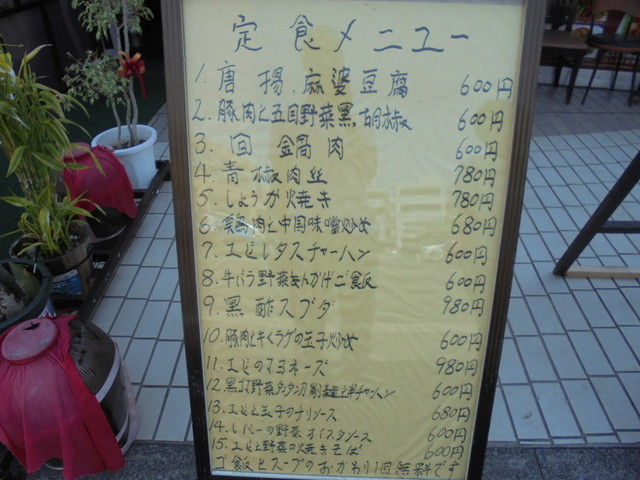 定食メニュー
1. 唐揚.麻婆豆腐 600円
2. 豚肉と五目野菜黒胡椒 600円
3. 回鍋肉 600円
4 青椒肉絲 780円
5. しょうが焼き 780円
6 鶏肉と中国味噌炒め 680円
7. エビレタスチャーハン 600円
8. 牛バラ野菜あんかけご飯 600円
9. 黒酢スブタ 980円
10. 豚肉とキクラゲの玉子炒め 600円
11. エビのマヨネーズ 980円
12. 黒ゴマ野菜タンタン刀削麺と半チャーハン 600円
13. エビと玉子のチリソース 680円
14. レバーの野菜オイスタソース 600円
15. エビと野菜の焼きそば 600円
ご飯とスープのおかわり1回無料です